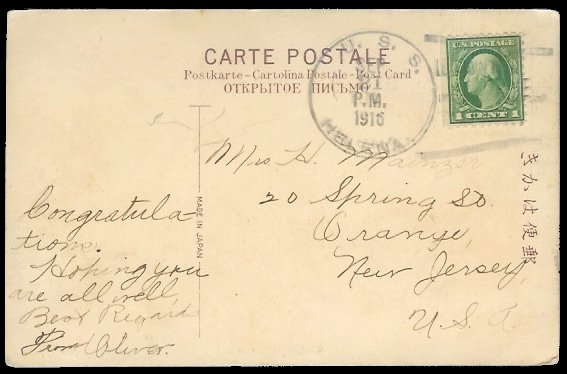 CARTE POSTALE
Postkarte - Cartolina Postale - Post Card
ОТКРЫТОЕ ПИСЬМО
U. S. S.
21
P.M.
1916
HELENA
U.S. POSTAGE
1 CENT 1
きかは便郵
MADE IN JAPAN
Mrs H.
20 Spring St.
Orange,
New Jersey,
U.S.A
Congratula-
tions.
Hoping you
are all well,
Best Regards
From Oliver.